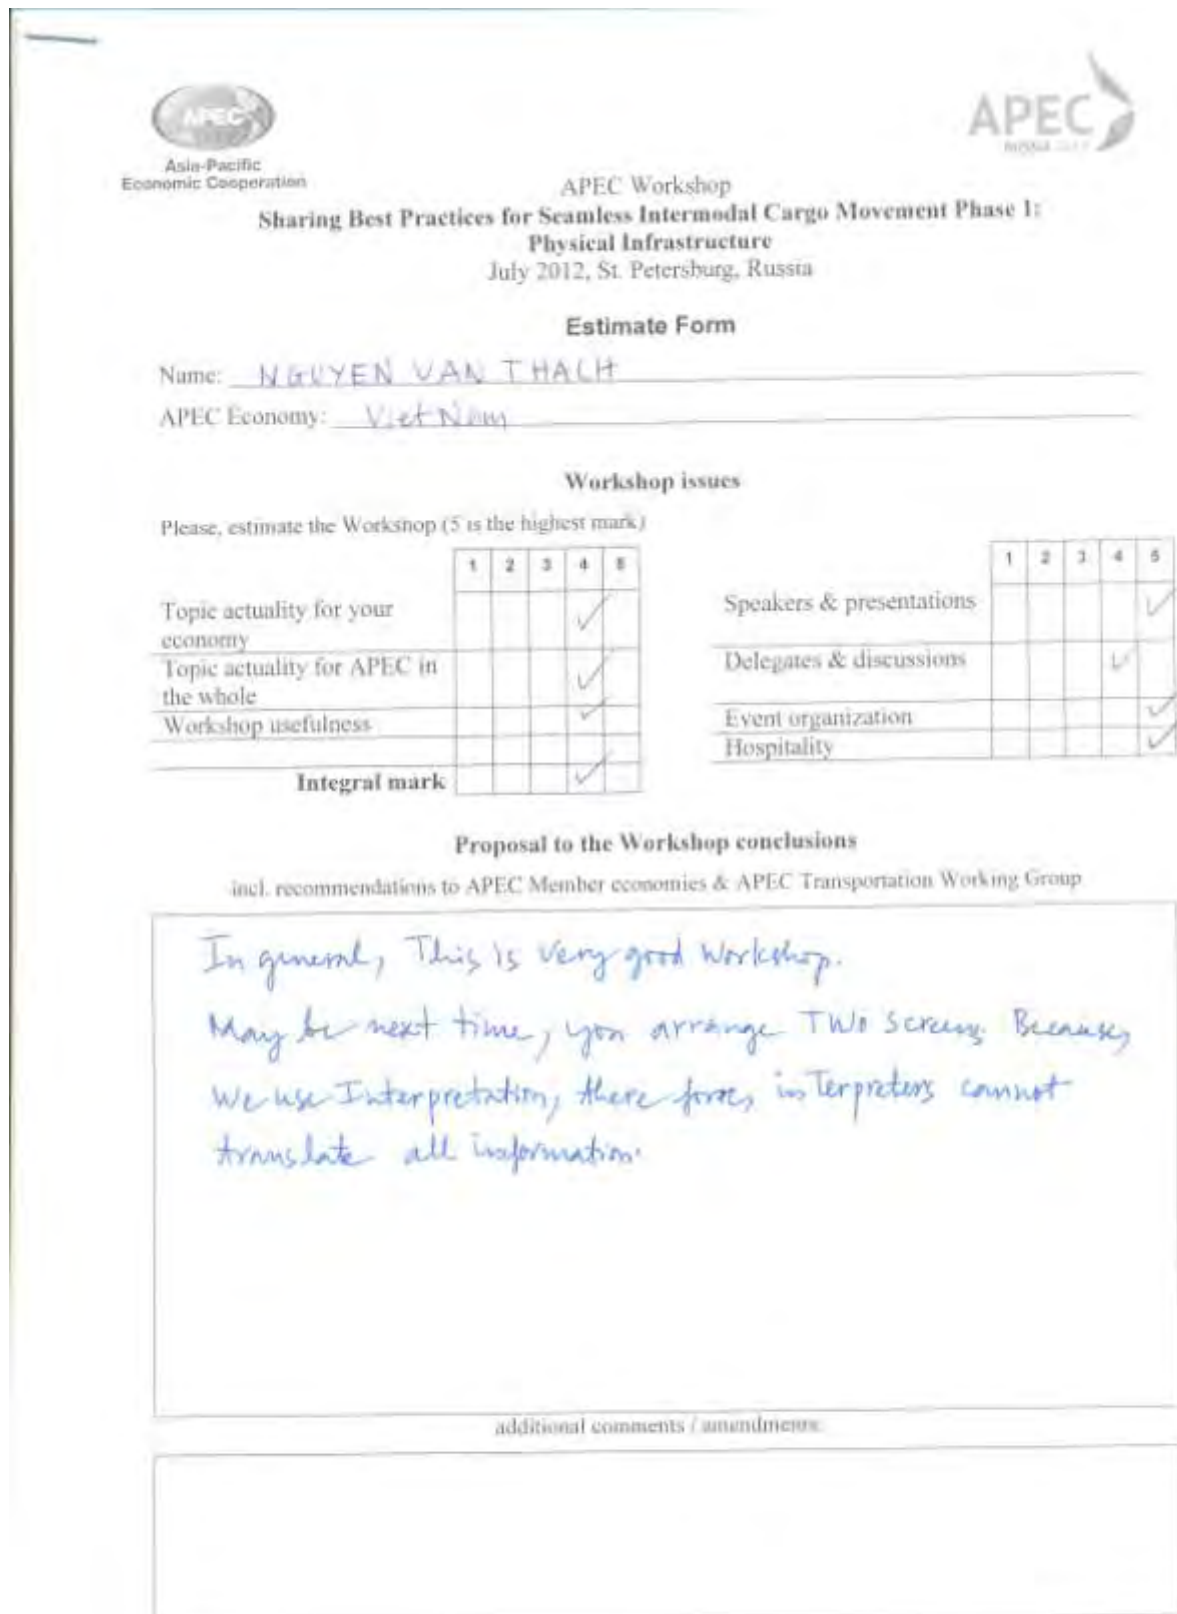 APEC
Asia-Pacific
Economic Cooperation
APEC
RUSSIA 2012
APEC Workshop
Sharing Best Practices for Seamless Intermodal Cargo Movement Phase 1:
Physical Infrastructure
July 2012, St. Petersburg, Russia
Estimate Form
Name: NGUYEN VAN THACH
APEC Economy: Viet Nam
Workshop issues
Please, estimate the Workshop (5 is the highest mark)
1 2 3 4 5
Topic actuality for your
economy
Topic actuality for APEC in
the whole
Workshop usefulness
Integral mark
1 2 3 4 5
Speakers & presentations
Delegates & discussions
Event organization
Hospitality
Proposal to the Workshop conclusions
incl. recommendations to APEC Member economies & APEC Transportation Working Group
In general, This is very good workshop.
May be next time, you arrange TWO screens. Because,
We use Interpretation, there fore, inTerpreters cannot
translate all information.
additional comments / amendments